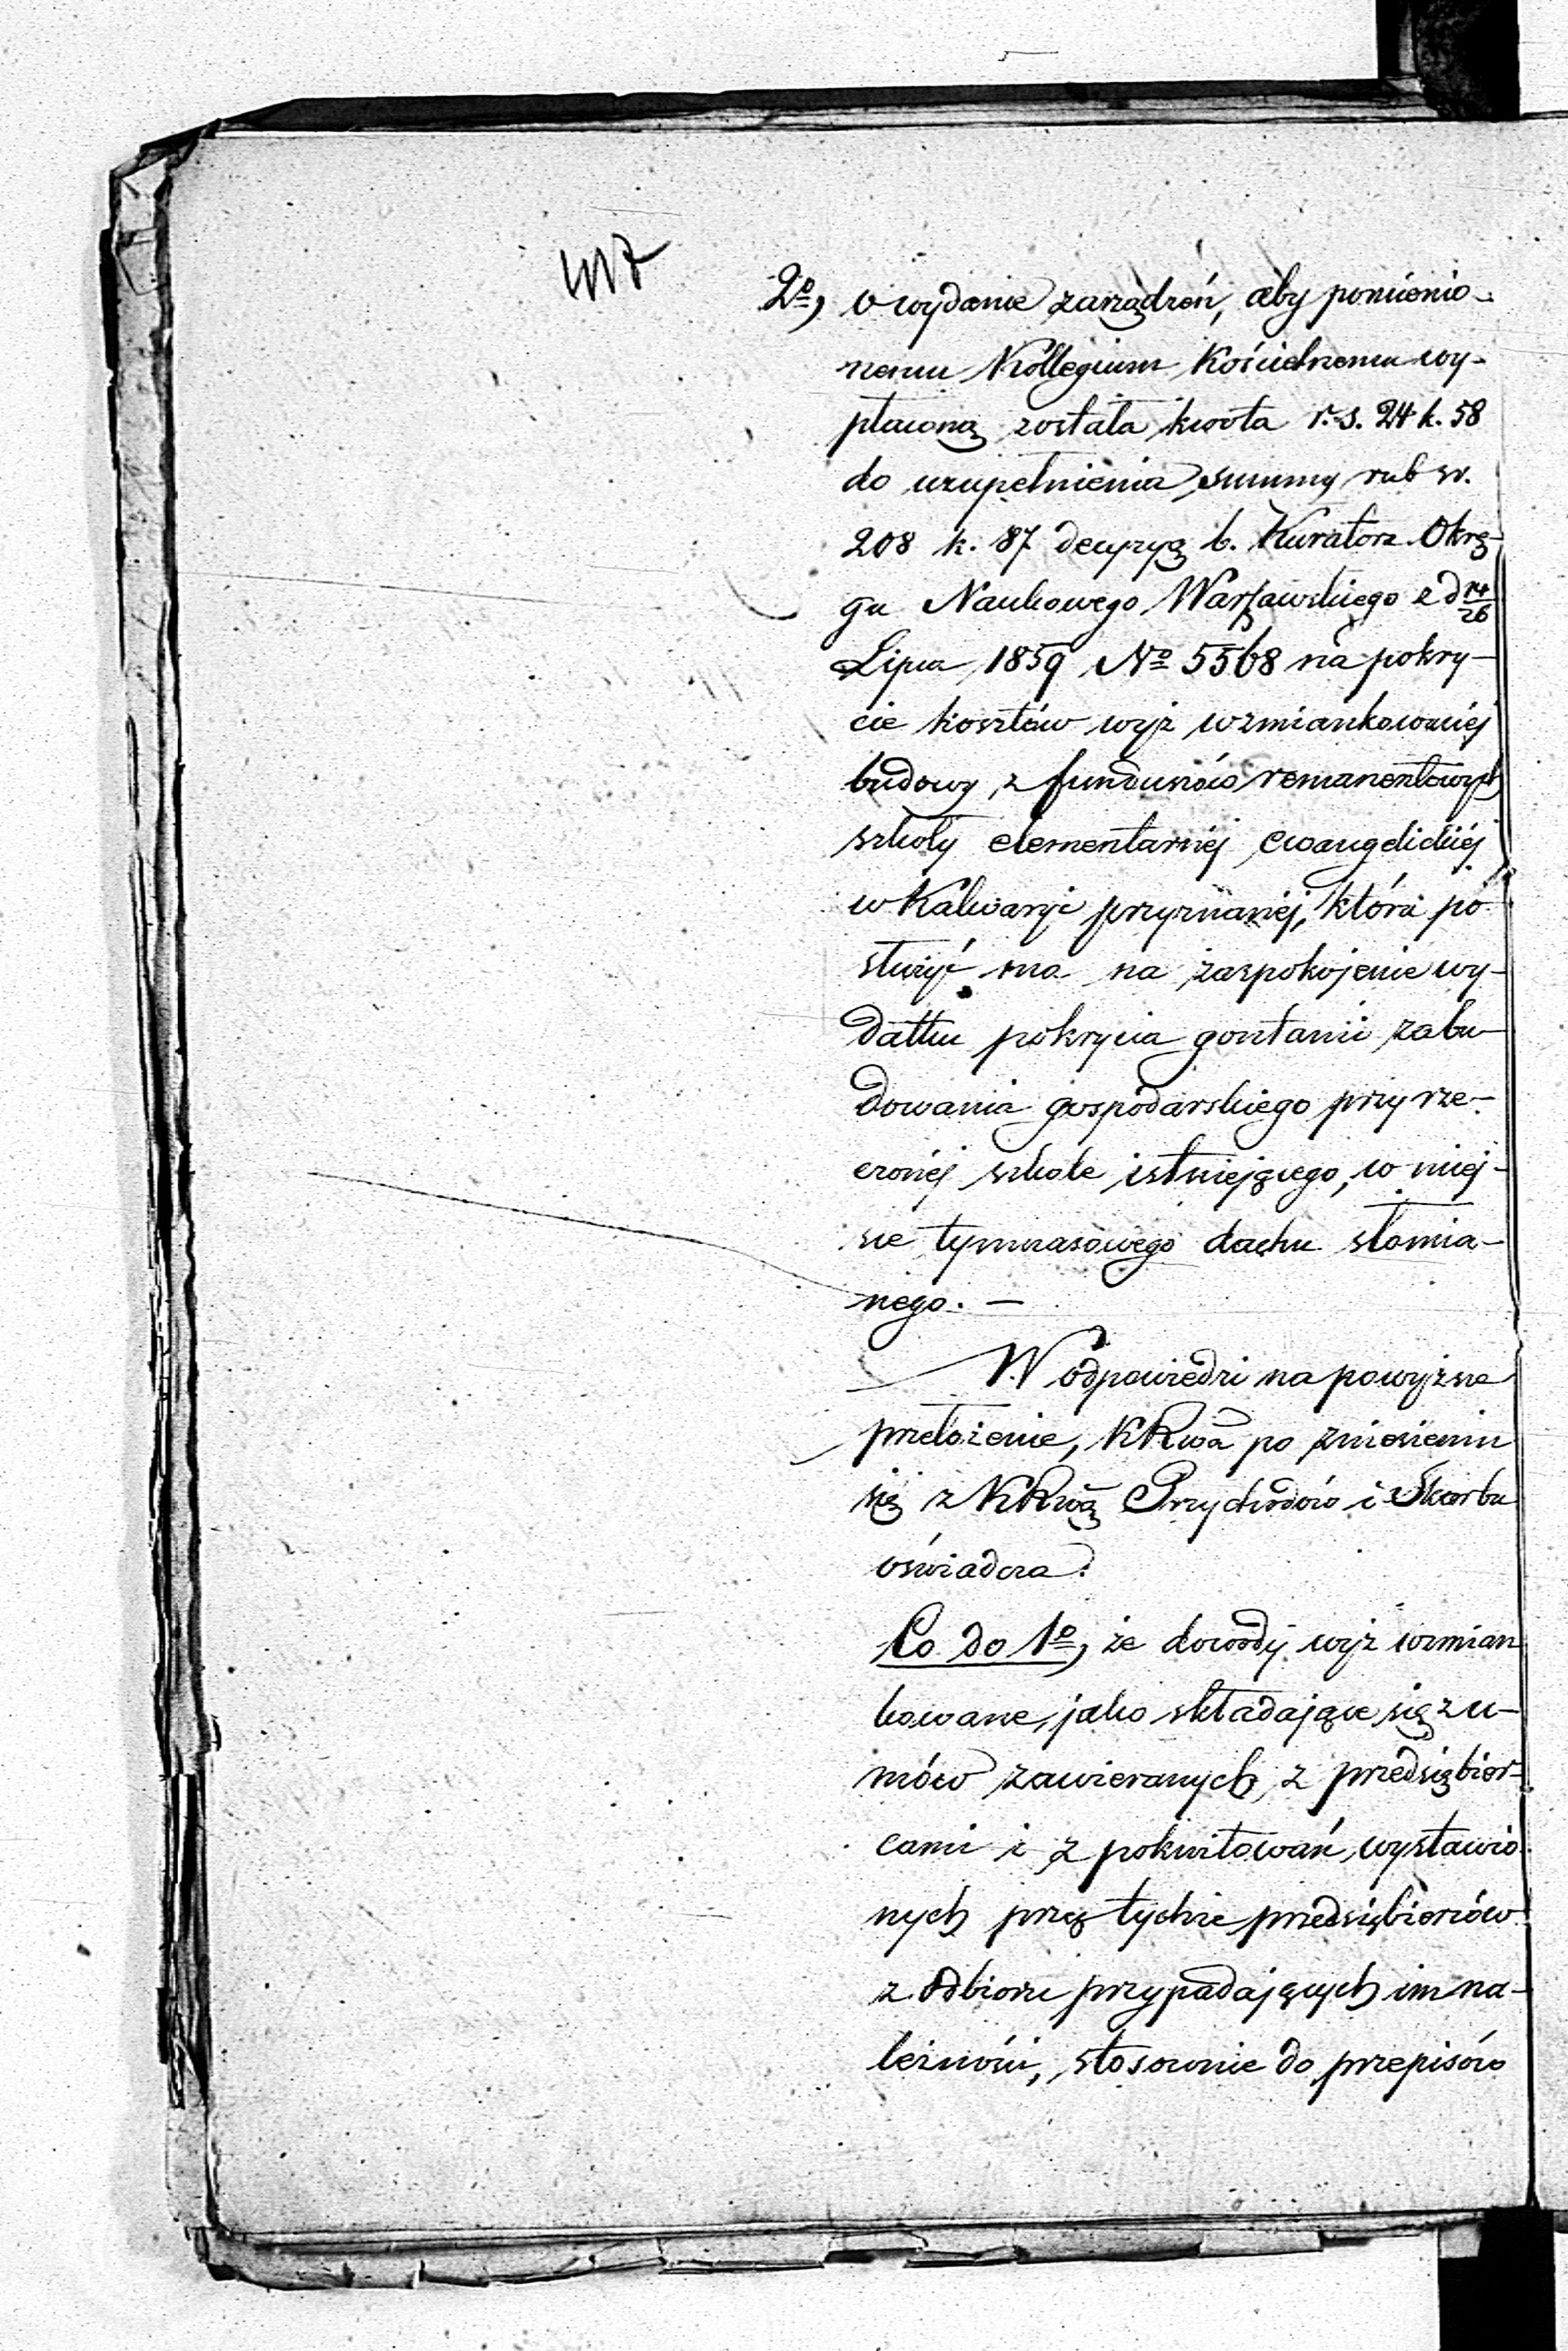 417
2º, o wydanie zarządzeń, aby pomienio-
nemu Kollegium Kościelnemu wy-
płaconą została kwota r. s. 24 k. 58
do uzupełnienia summy rub sr.
208 k. 87 decyzyą b. Kuratora Okrę-
gu Naukowego Warszawskiego z d 14/26
Lipca 1859 Nº 5568 na pokry-
cie kosztów wyż wzmiankowanéj
budowy, z funduszów remanentowych
szkoły elementarnéj ewangelickiéj
w Kalwaryi przyznanéj, która po
służyć ma na zaspokojenie wy-
datku pokrycia gontami zabu-
dowania gospodarskiego przy rze-
czonéj szkole istniejącego, w miej-
sce tymczasowego dachu słomia-
nego. —
W odpowiedzi na powyższe
przełożenie, KRwa po zniesieniu
się z KRwą Przychodów i Skarbu
oświadcza:
Co do 1º, że dowody wyż wzmian
kowane, jako składające się z u-
mów zawieranych z przedsiębior-
cami i z pokwitowań wystawio
nych przez tychże przedsiębiorców
z odbioru przypadających im na-
leżności, stosownie do przepisów